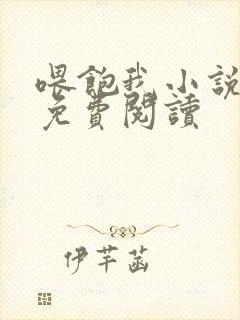 喂飽我小說
免費閱讀
伊芊菡